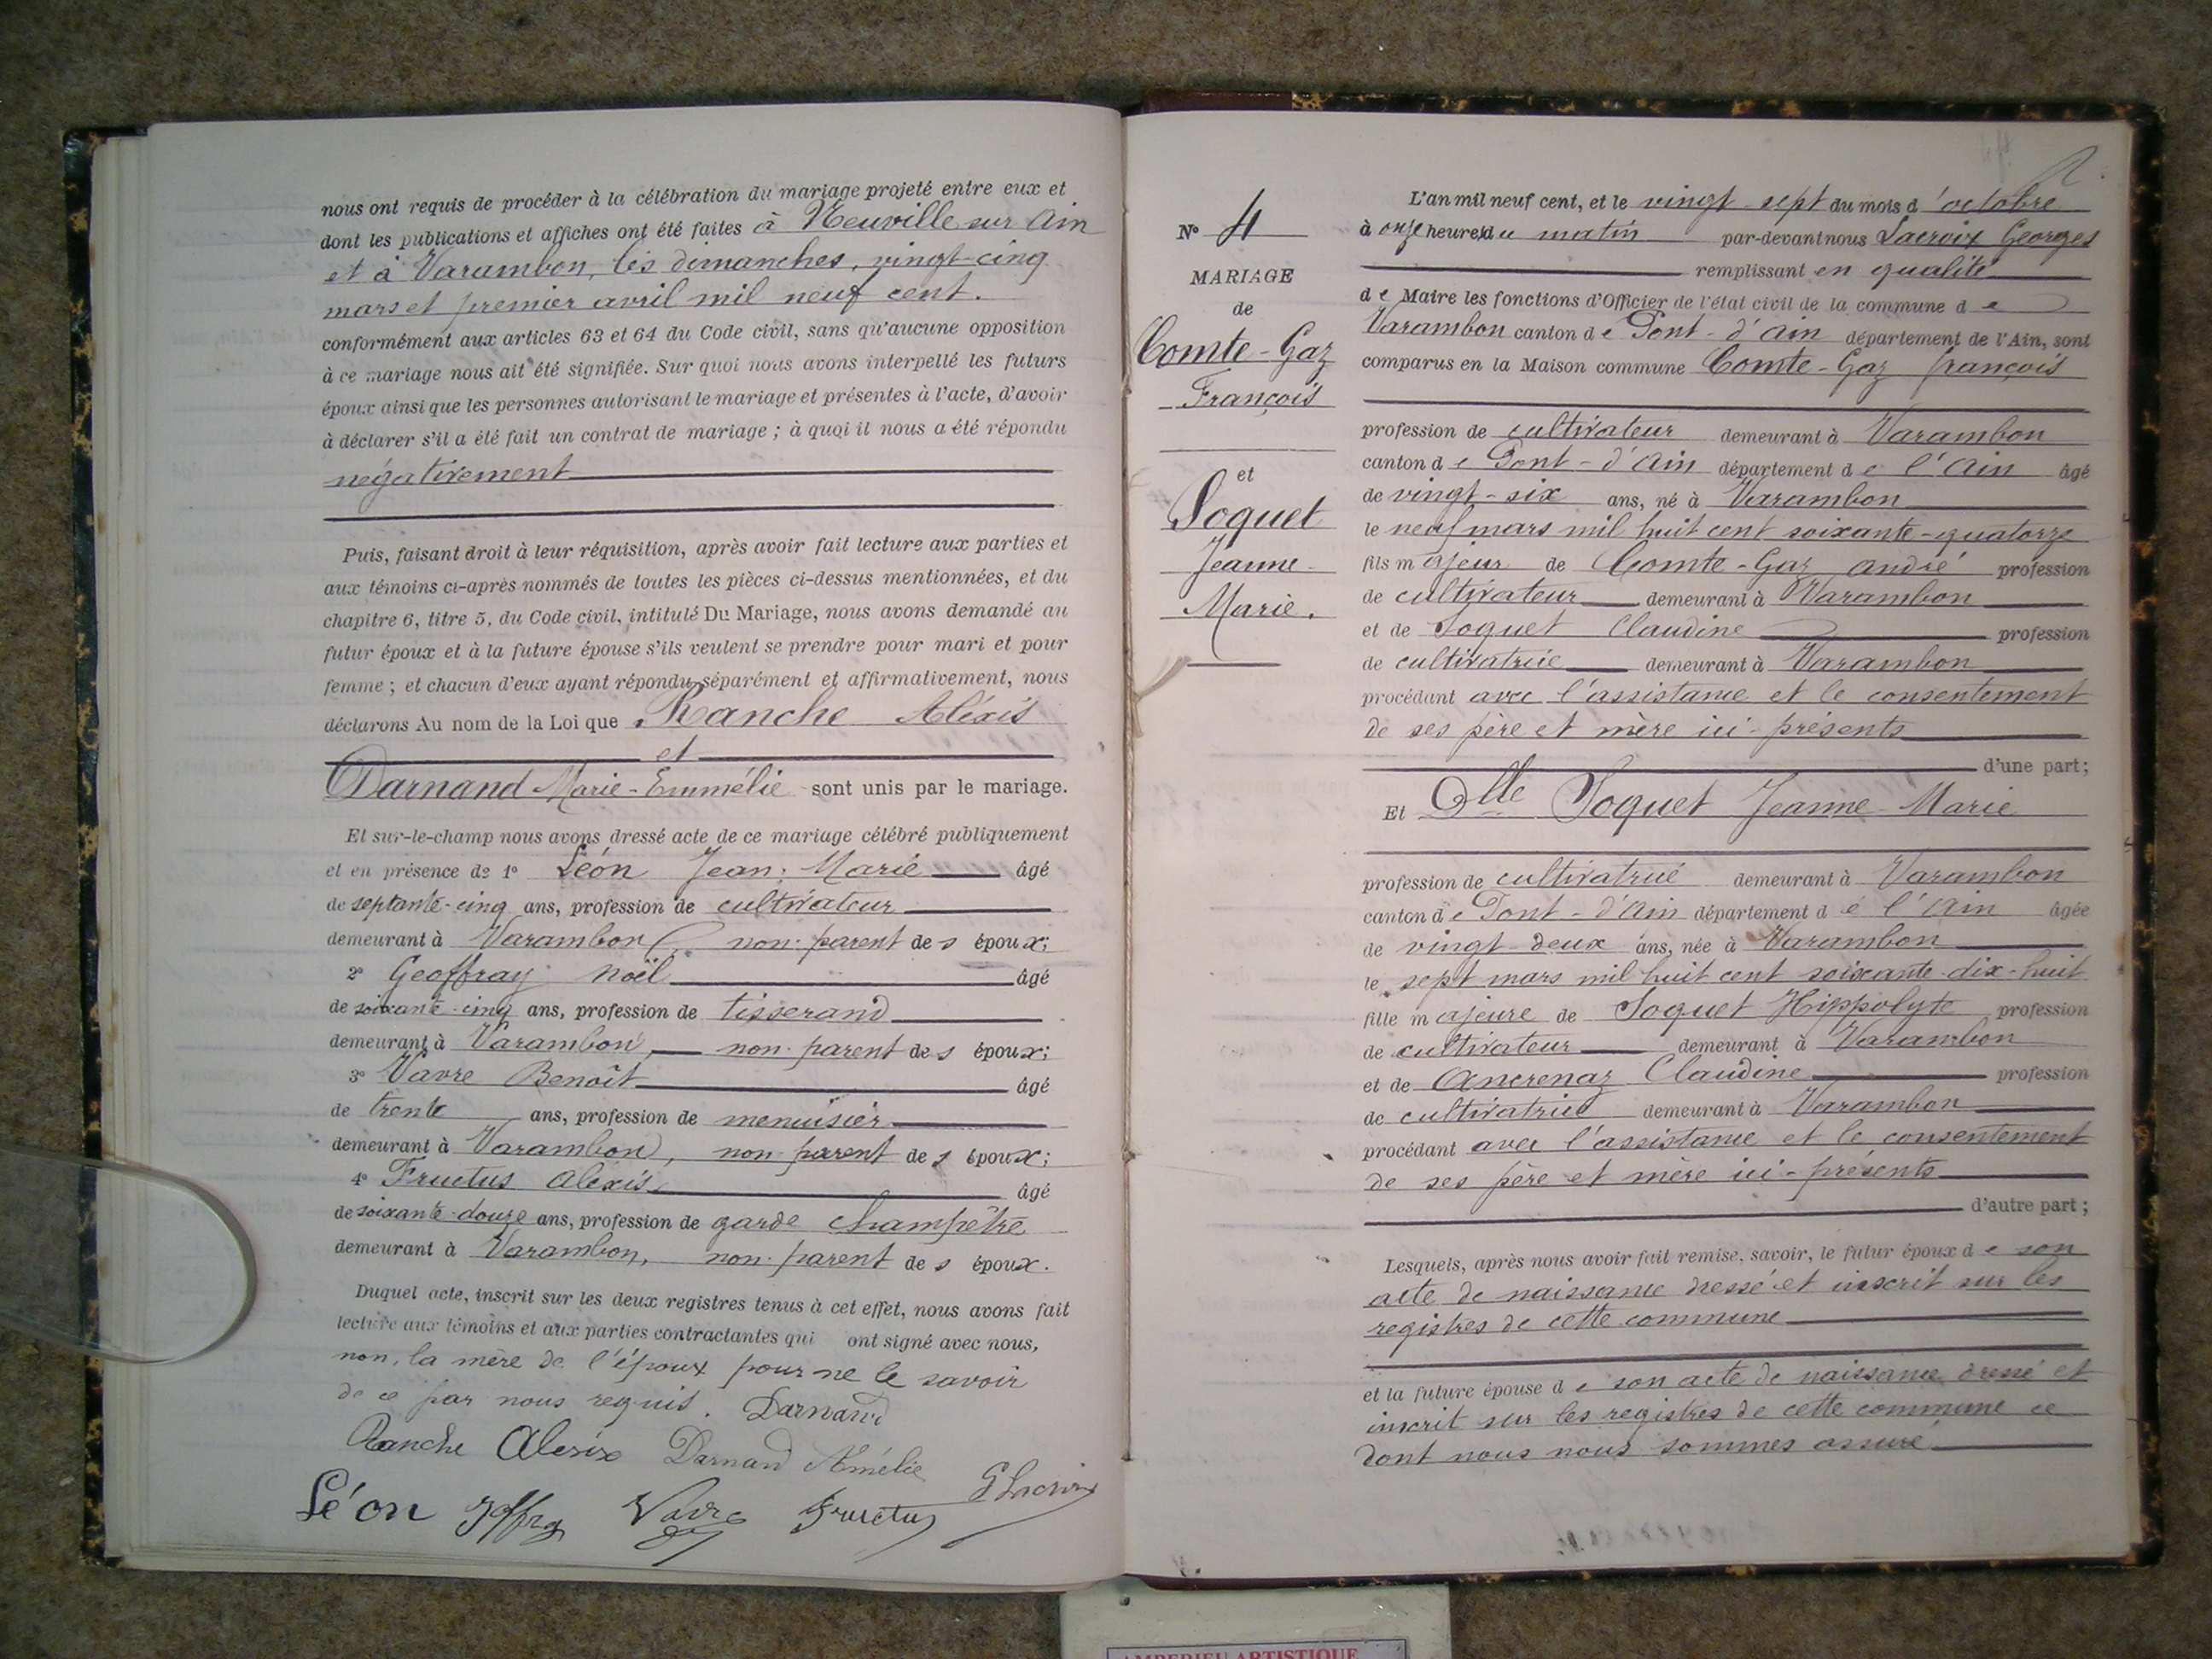 nous ont requis de procéder à la célébration du mariage projeté entre eux et
dont les publications et affiches ont été faites à Neuville sur Ain
et à Varambon, les dimanches, vingt-cinq
mars et premier avril mil neuf cent.
conformément aux articles 63 et 64 du Code civil, sans qu'aucune opposition
à ce mariage nous ait été signifiée. Sur quoi nous avons interpellé les futurs
époux ainsi que les personnes autorisant le mariage et présentes à l'acte, d'avoir
à déclarer s'il a été fait un contrat de mariage ; à quoi il nous a été répondu
négativement
Puis, faisant droit à leur réquisition, après avoir fait lecture aux parties et
aux témoins ci-après nommés de toutes les pièces ci-dessus mentionnées, et du
chapitre 6, titre 5, du Code civil, intitulé Du Mariage, nous avons demandé au
futur époux et à la future épouse s'ils veulent se prendre pour mari et pour
femme ; et chacun d'eux ayant répondu séparément et affirmativement, nous
déclarons Au nom de la Loi que Ranche Aléxis
et
Darnand Marie-Emmélie sont unis par le mariage.
Et sur-le-champ nous avons dressé acte de ce mariage célébré publiquement
et en présence de 1° Léon Jean-Marie âgé
de septante-cinq ans, profession de cultivateur
demeurant à Varambon, non parent des époux;
2° Geoffray Noël âgé
de soixante-cinq ans, profession de tisserand
demeurant à Varambon, non parent des époux;
3° Vavre Benoît âgé
de trente ans, profession de menuisier
demeurant à Varambon, non parent des époux;
4° Fructus Alexis, âgé
de soixante-douze ans, profession de garde champêtre
demeurant à Varambon, non parent des époux.
Duquel acte, inscrit sur les deux registres tenus à cet effet, nous avons fait
lecture aux témoins et aux parties contractantes qui ont signé avec nous,
non, la mère de l'époux pour ne le savoir
de ce par nous requis. Darnand
Ranche Alexis Darnand Amélie
Léon Joffray Vavre Fructus G Lacroix
N° 4
MARIAGE
de
Comte-Gaz
François
et
Soquet
Jeanne-
Marie.
L'an mil neuf cent, et le vingt-sept du mois d'octobre
à onze heures du matin par-devant nous Lacroix Georges
remplissant en qualité
de Maire les fonctions d'Officier de l'état civil de la commune de
Varambon canton de Pont-d'Ain département de l'Ain, sont
comparus en la Maison commune Comte-Gaz françois
profession de cultivateur demeurant à Varambon
canton de Pont-d'Ain département de l'Ain âgé
de vingt-six ans, né à Varambon
le neuf mars mil huit cent soixante-quatorze
fils majeur de Comte-Gaz André profession
de cultivateur demeurant à Varambon
et de Soquet Claudine profession
de cultivatrice demeurant à Varambon
procédant avec l'assistance et le consentement
de ses père et mère ici-présents
d'une part;
Et Dlle Soquet Jeanne-Marie
profession de cultivatrice demeurant à Varambon
canton de Pont-d'Ain département de l'Ain âgée
de vingt-deux ans, née à Varambon
le sept mars mil huit cent soixante-dix-huit
fille majeure de Soquet Hippolyte profession
de cultivateur demeurant à Varambon
et de Ancrenaz Claudine profession
de cultivatrice demeurant à Varambon
procédant avec l'assistance et le consentement
de ses père et mère ici-présents
d'autre part ;
Lesquels, après nous avoir fait remise, savoir, le futur époux de son
acte de naissance dressé et inscrit sur les
registres de cette commune
et la future épouse de son acte de naissance dressé et
inscrit sur les registres de cette commune ce
dont nous nous sommes assuré
AMBERIEU ARTISTIQUE